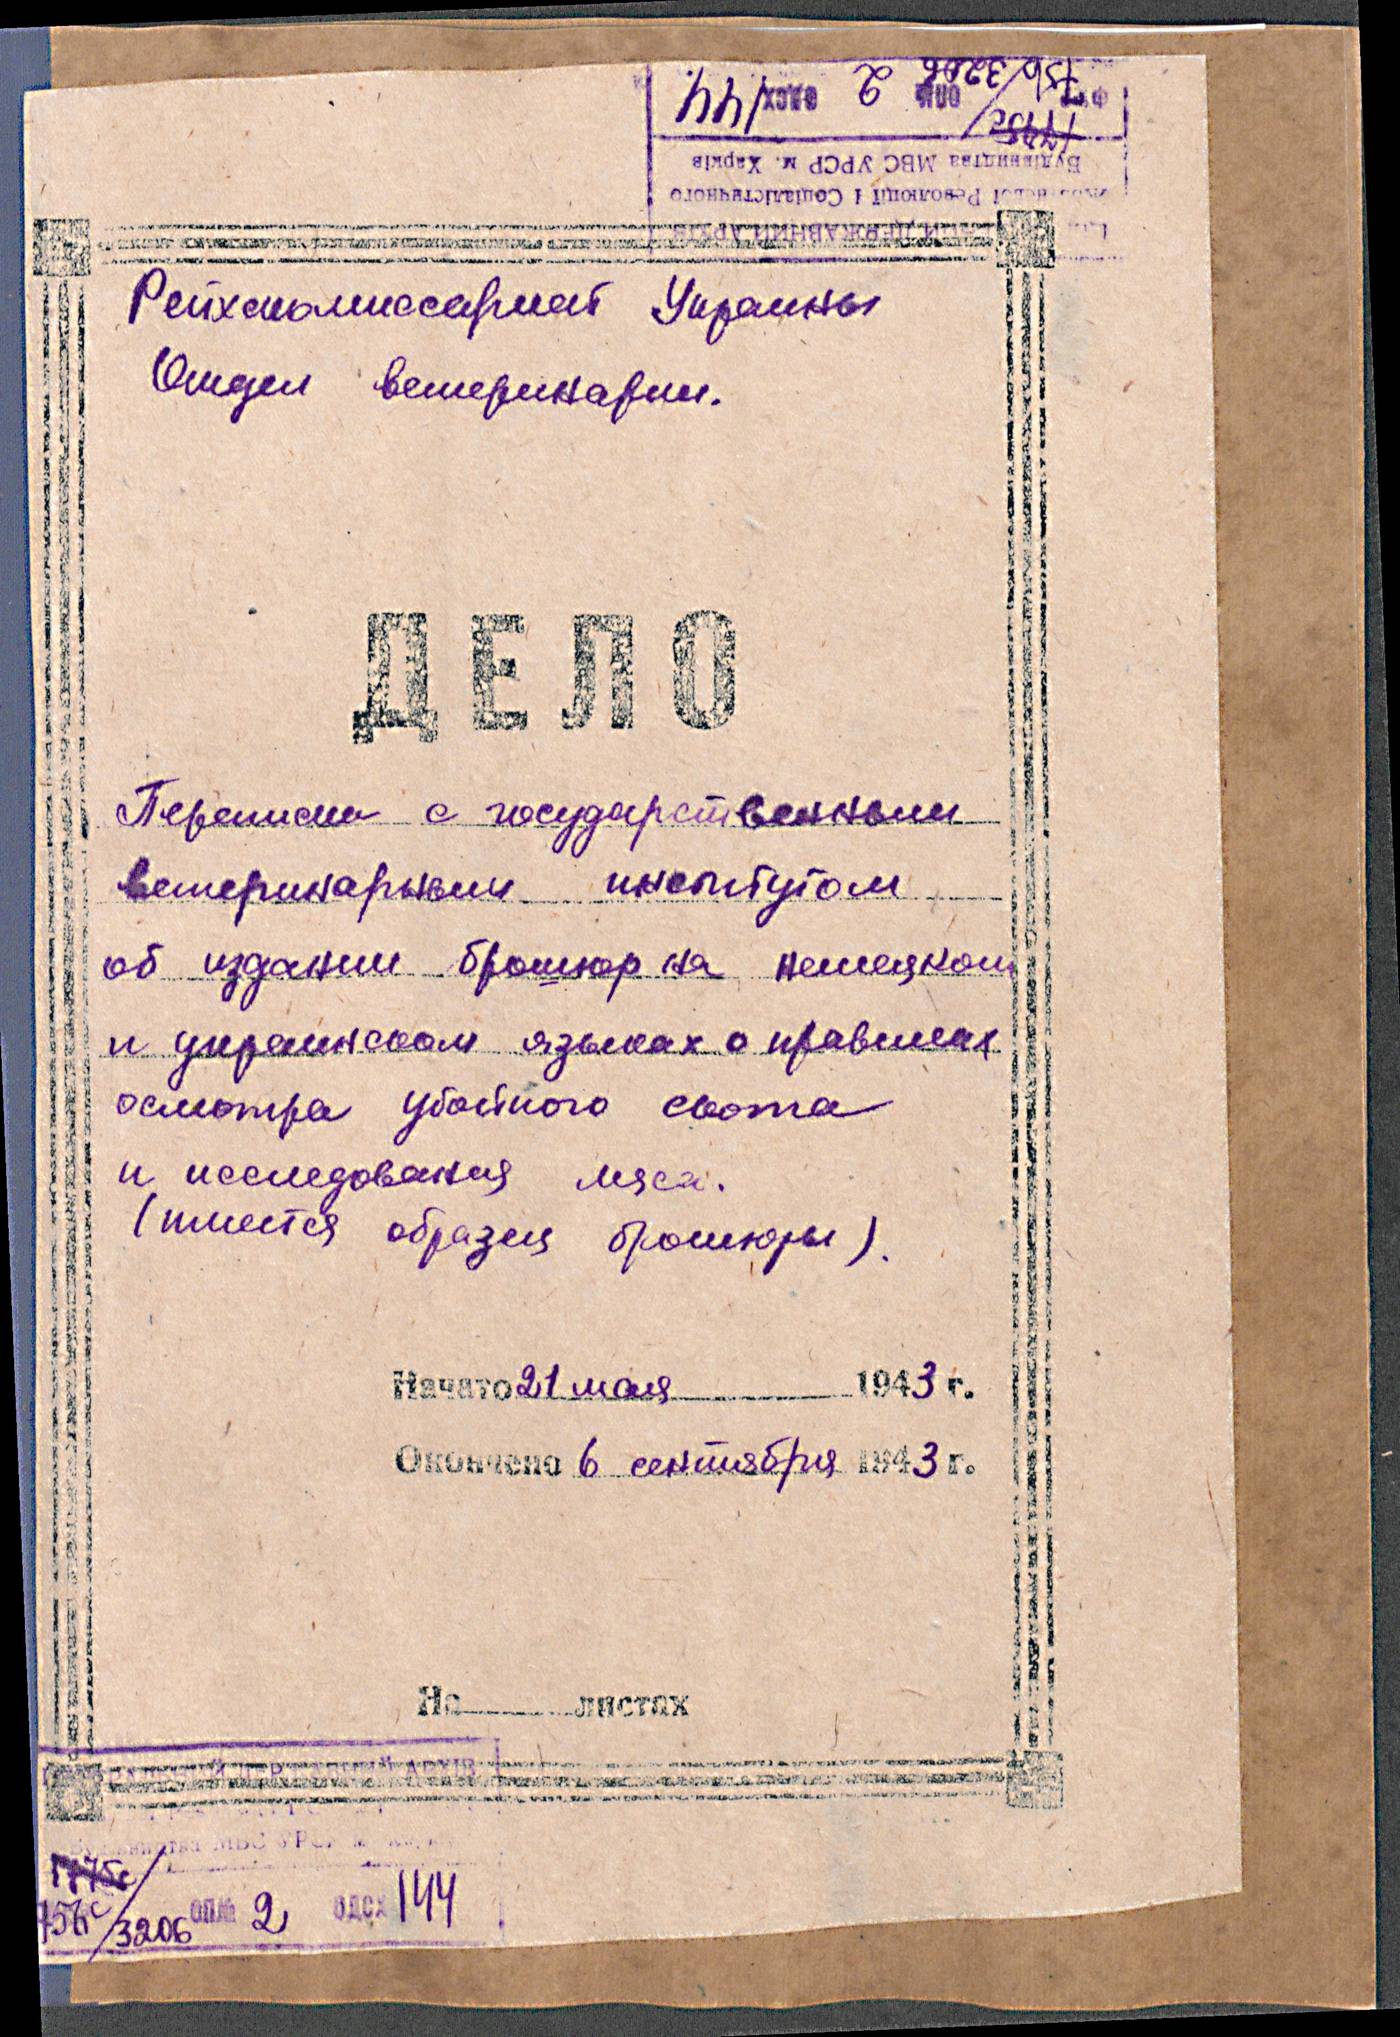 144 ОДСХ 2 ОПИ 3206
Будівництва МВС УРСР м. Харків
Революції і Соціалістичного
ДЕРЖАВНИЙ АРХІВ
Рейхскомиссариат Украины
Отдел ветеринарии.
ДЕЛО
Переписка с государственным
ветеринарным институтом
об издании брошюр на немецком
и украинском языках о правилах
осмотра убойного скота
и исследования мяса.
(имеется образец брошюры).
Начато 21 мая 1943 г.
Окончено 6 сентября 1943 г.
На листах
АРХІВ
МВС УРСР
1775с
756с/3206 ОПИ 2 ОДСХ 144